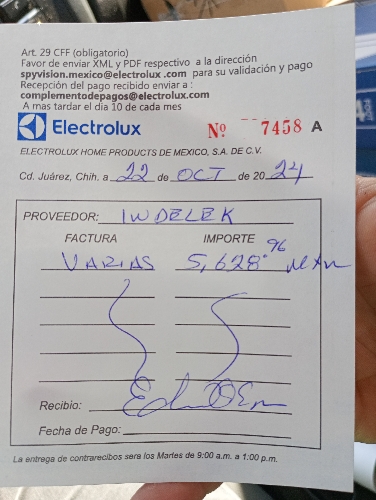 Art. 29 CFF (obligatorio)
Favor de enviar XML y PDF respectivo a la dirección
spyvision.mexico@electrolux .com para su validación y pago
Recepción del pago recibido enviar a :
complementodepagos@electrolux.com
A mas tardar el día 10 de cada mes
Electrolux Nº 7458 A
ELECTROLUX HOME PRODUCTS DE MEXICO, S.A. DE C.V.
Cd. Juárez, Chih. a 22 de OCT de 20 24
PROVEEDOR: INDELEK
FACTURA IMPORTE
VARIAS 5,628.96 MXN
Recibio:
Fecha de Pago:
La entrega de contrarecibos sera los Martes de 9:00 a.m. a 1:00 p.m.